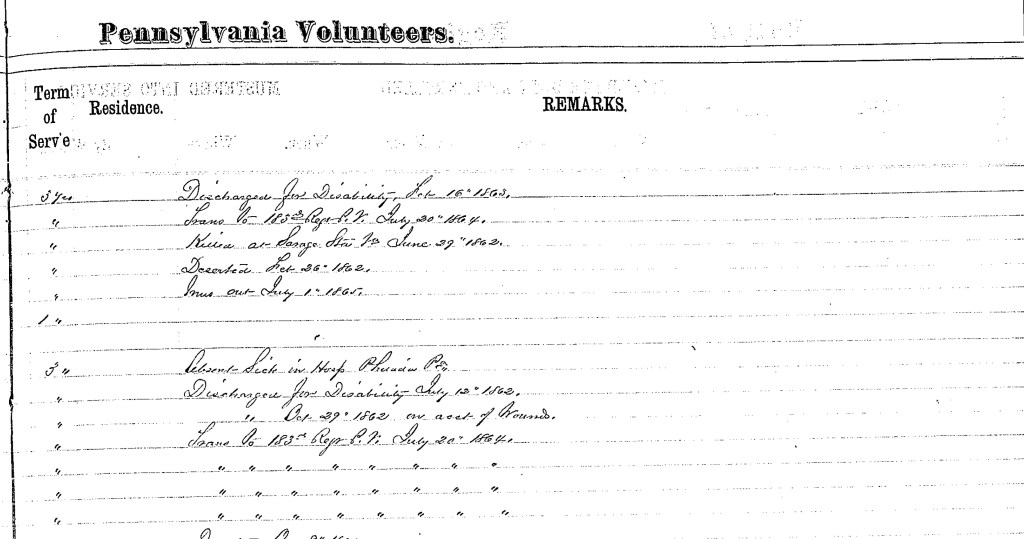 Pennsylvania Volunteers.
Term of Serv'e Residence. REMARKS.
3 Yrs Discharged for Disability, Feb 16" 1863.
" Trans to 183rd Regt P.V. July 20" 1864.
" Killed at Savage Sta Va June 29" 1862.
" Deserted Feb 26" 1862.
" Mus out July 1" 1865.
1 "
"
3 " Absent Sick in Hosp Philada Pa
" Discharged for Disability July 12" 1862.
" " Oct 29" 1862 on acct of Wounds.
" Trans to 183rd Regt P.V. July 20" 1864.
" " " " " " " " "
" " " " " " " " "
" " " " " " " " "